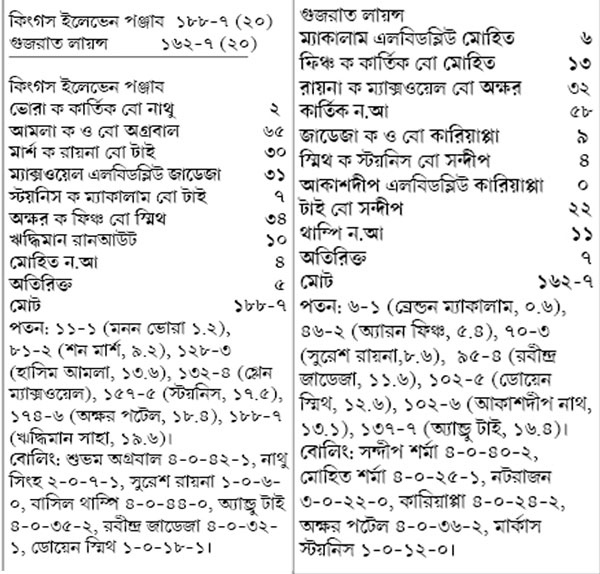 কিংগস ইলেভেন পঞ্জাব ১৮৮-৭ (২০)
গুজরাত লায়ন্স ১৬২-৭ (২০)
কিংগস ইলেভেন পঞ্জাব
ভোরা ক কার্তিক বো নাথু ২
আমলা ক ও বো অগ্রবাল ৬৫
মার্শ ক রায়না বো টাই ৩০
ম্যাক্সওয়েল এলবিডব্লিউ জাডেজা ৩১
স্টয়নিস ক ম্যাকালাম বো টাই ৭
অক্ষর ক ফিঞ্চ বো স্মিথ ৩৪
ঋদ্ধিমান রানআউট ১০
মোহিত ন.আ ৪
অতিরিক্ত ৫
মোট ১৮৮-৭
পতন: ১১-১ (মনন ভোরা ১.২),
৮১-২ (শন মার্শ, ৯.২), ১২৮-৩
(হাসিম আমলা, ১৩.৬), ১৩২-৪ (গ্লেন
ম্যাক্সওয়েল), ১৫৭-৫ (স্টয়নিস, ১৭.৫),
১৭৪-৬ (অক্ষর পটেল, ১৮.৪), ১৮৮-৭
(ঋদ্ধিমান সাহা, ১৯.৬)।
বোলিং: শুভম অগ্রবাল ৪-০-৪২-১, নাথু
সিংহ ২-০-৭-১, সুরেশ রায়না ১-০-৬-
০, বাসিল থাম্পি ৪-০-৪৪-০, অ্যান্ড্রু টাই
৪-০-৩৫-২, রবীন্দ্র জাডেজা ৪-০-৩২-
১, ডোয়েন স্মিথ ১-০-১৮-১।
গুজরাত লায়ন্স
ম্যাকালাম এলবিডব্লিউ মোহিত ৬
ফিঞ্চ ক কার্তিক বো মোহিত ১৩
রায়না ক ম্যাক্সওয়েল বো অক্ষর ৩২
কার্তিক ন.আ ৫৮
জাডেজা ক ও বো কারিয়াপ্পা ৯
স্মিথ ক স্টয়নিস বো সন্দীপ ৪
আকাশদীপ এলবিডব্লিউ কারিয়াপ্পা ০
টাই বো সন্দীপ ২২
থাম্পি ন.আ ১১
অতিরিক্ত ৭
মোট ১৬২-৭
পতন: ৬-১ (ব্রেন্ডন ম্যাকালাম, ০.৬),
৪৬-২ (অ্যারন ফিঞ্চ, ৫.৪), ৭০-৩
(সুরেশ রায়না,৮.৬), ৯৫-৪ (রবীন্দ্র
জাডেজা, ১১.৬), ১০২-৫ (ডোয়েন
স্মিথ, ১২.৬), ১০২-৬ (আকাশদীপ নাথ,
১৩.১), ১৩৭-৭ (অ্যান্ড্রু টাই, ১৬.৪)।
বোলিং: সন্দীপ শর্মা ৪-০-৪০-২,
মোহিত শর্মা ৪-০-২৫-১, নটরাজন
৩-০-২২-০, কারিয়াপ্পা ৪-০-২৪-২,
অক্ষর পটেল ৪-০-৩৬-২, মার্কাস
স্টয়নিস ১-০-১২-০।